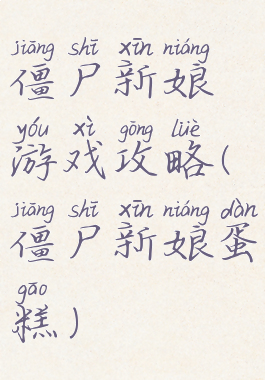 jiāng shī xīn niáng
僵尸新娘
yóu xì gōng lüè
游戏攻略(
jiāng shī xīn niáng dàn
僵尸新娘蛋
gāo
糕)